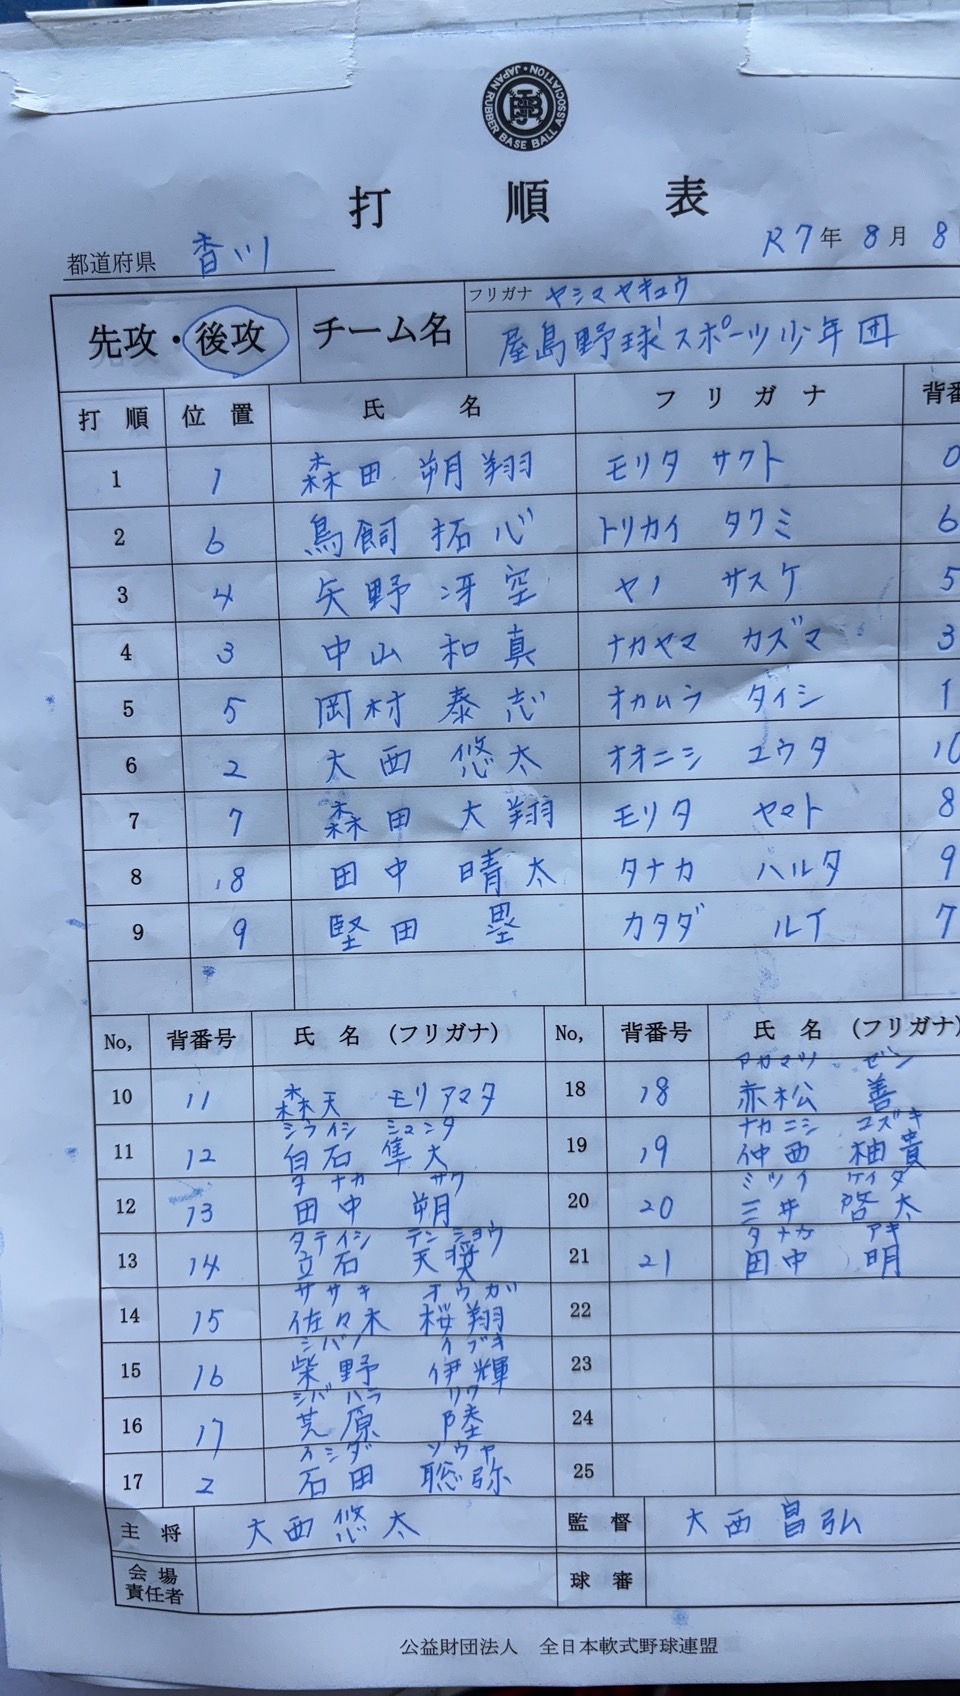 JAPAN RUBBER BASE BALL ASSOCIATION
打順表
都道府県 香川 R7年8月8
先攻・後攻 チーム名 フリガナ ヤシマヤキュウ
屋島野球スポーツ少年団
打順 位置 氏名 フリガナ 背番
1 1 森田 朔翔 モリタ サクト 0
2 6 鳥飼 拓心 トリカイ タクミ 6
3 4 矢野 冴空 ヤノ サスケ 5
4 3 中山 和真 ナカヤマ カズマ 3
5 5 岡村 泰志 オカムラ タイシ 1
6 2 大西 悠太 オオニシ ユウタ 10
7 7 森田 大翔 モリタ ヤマト 8
8 8 田中 晴太 タナカ ハルタ 9
9 9 堅田 塁 カタダ ルイ 7
No, 背番号 氏名(フリガナ) No, 背番号 氏名(フリガナ)
アカマツ ゼン
10 11 森天 モリアマタ 18 18 赤松 善
シライシ シュンタ ナカニシ ユズキ
11 12 白石 隼太 19 19 仲西 柚貴
タナカ サク ミツイ ケイタ
12 13 田中 朔 20 20 三井 啓太
タテイシ テンショウ タナカ アキ
13 14 立石 天奨 21 21 田中 明
ササキ オウガ
14 15 佐々木 桜翔 22
シバノ イブキ
15 16 柴野 伊輝 23
シバハラ リク
16 17 原 陸 24
イシダ ソウヤ
17 2 石田 聡弥 25
主将 大西悠太 監督 大西昌弘
会場責任者 球審
公益財団法人 全日本軟式野球連盟